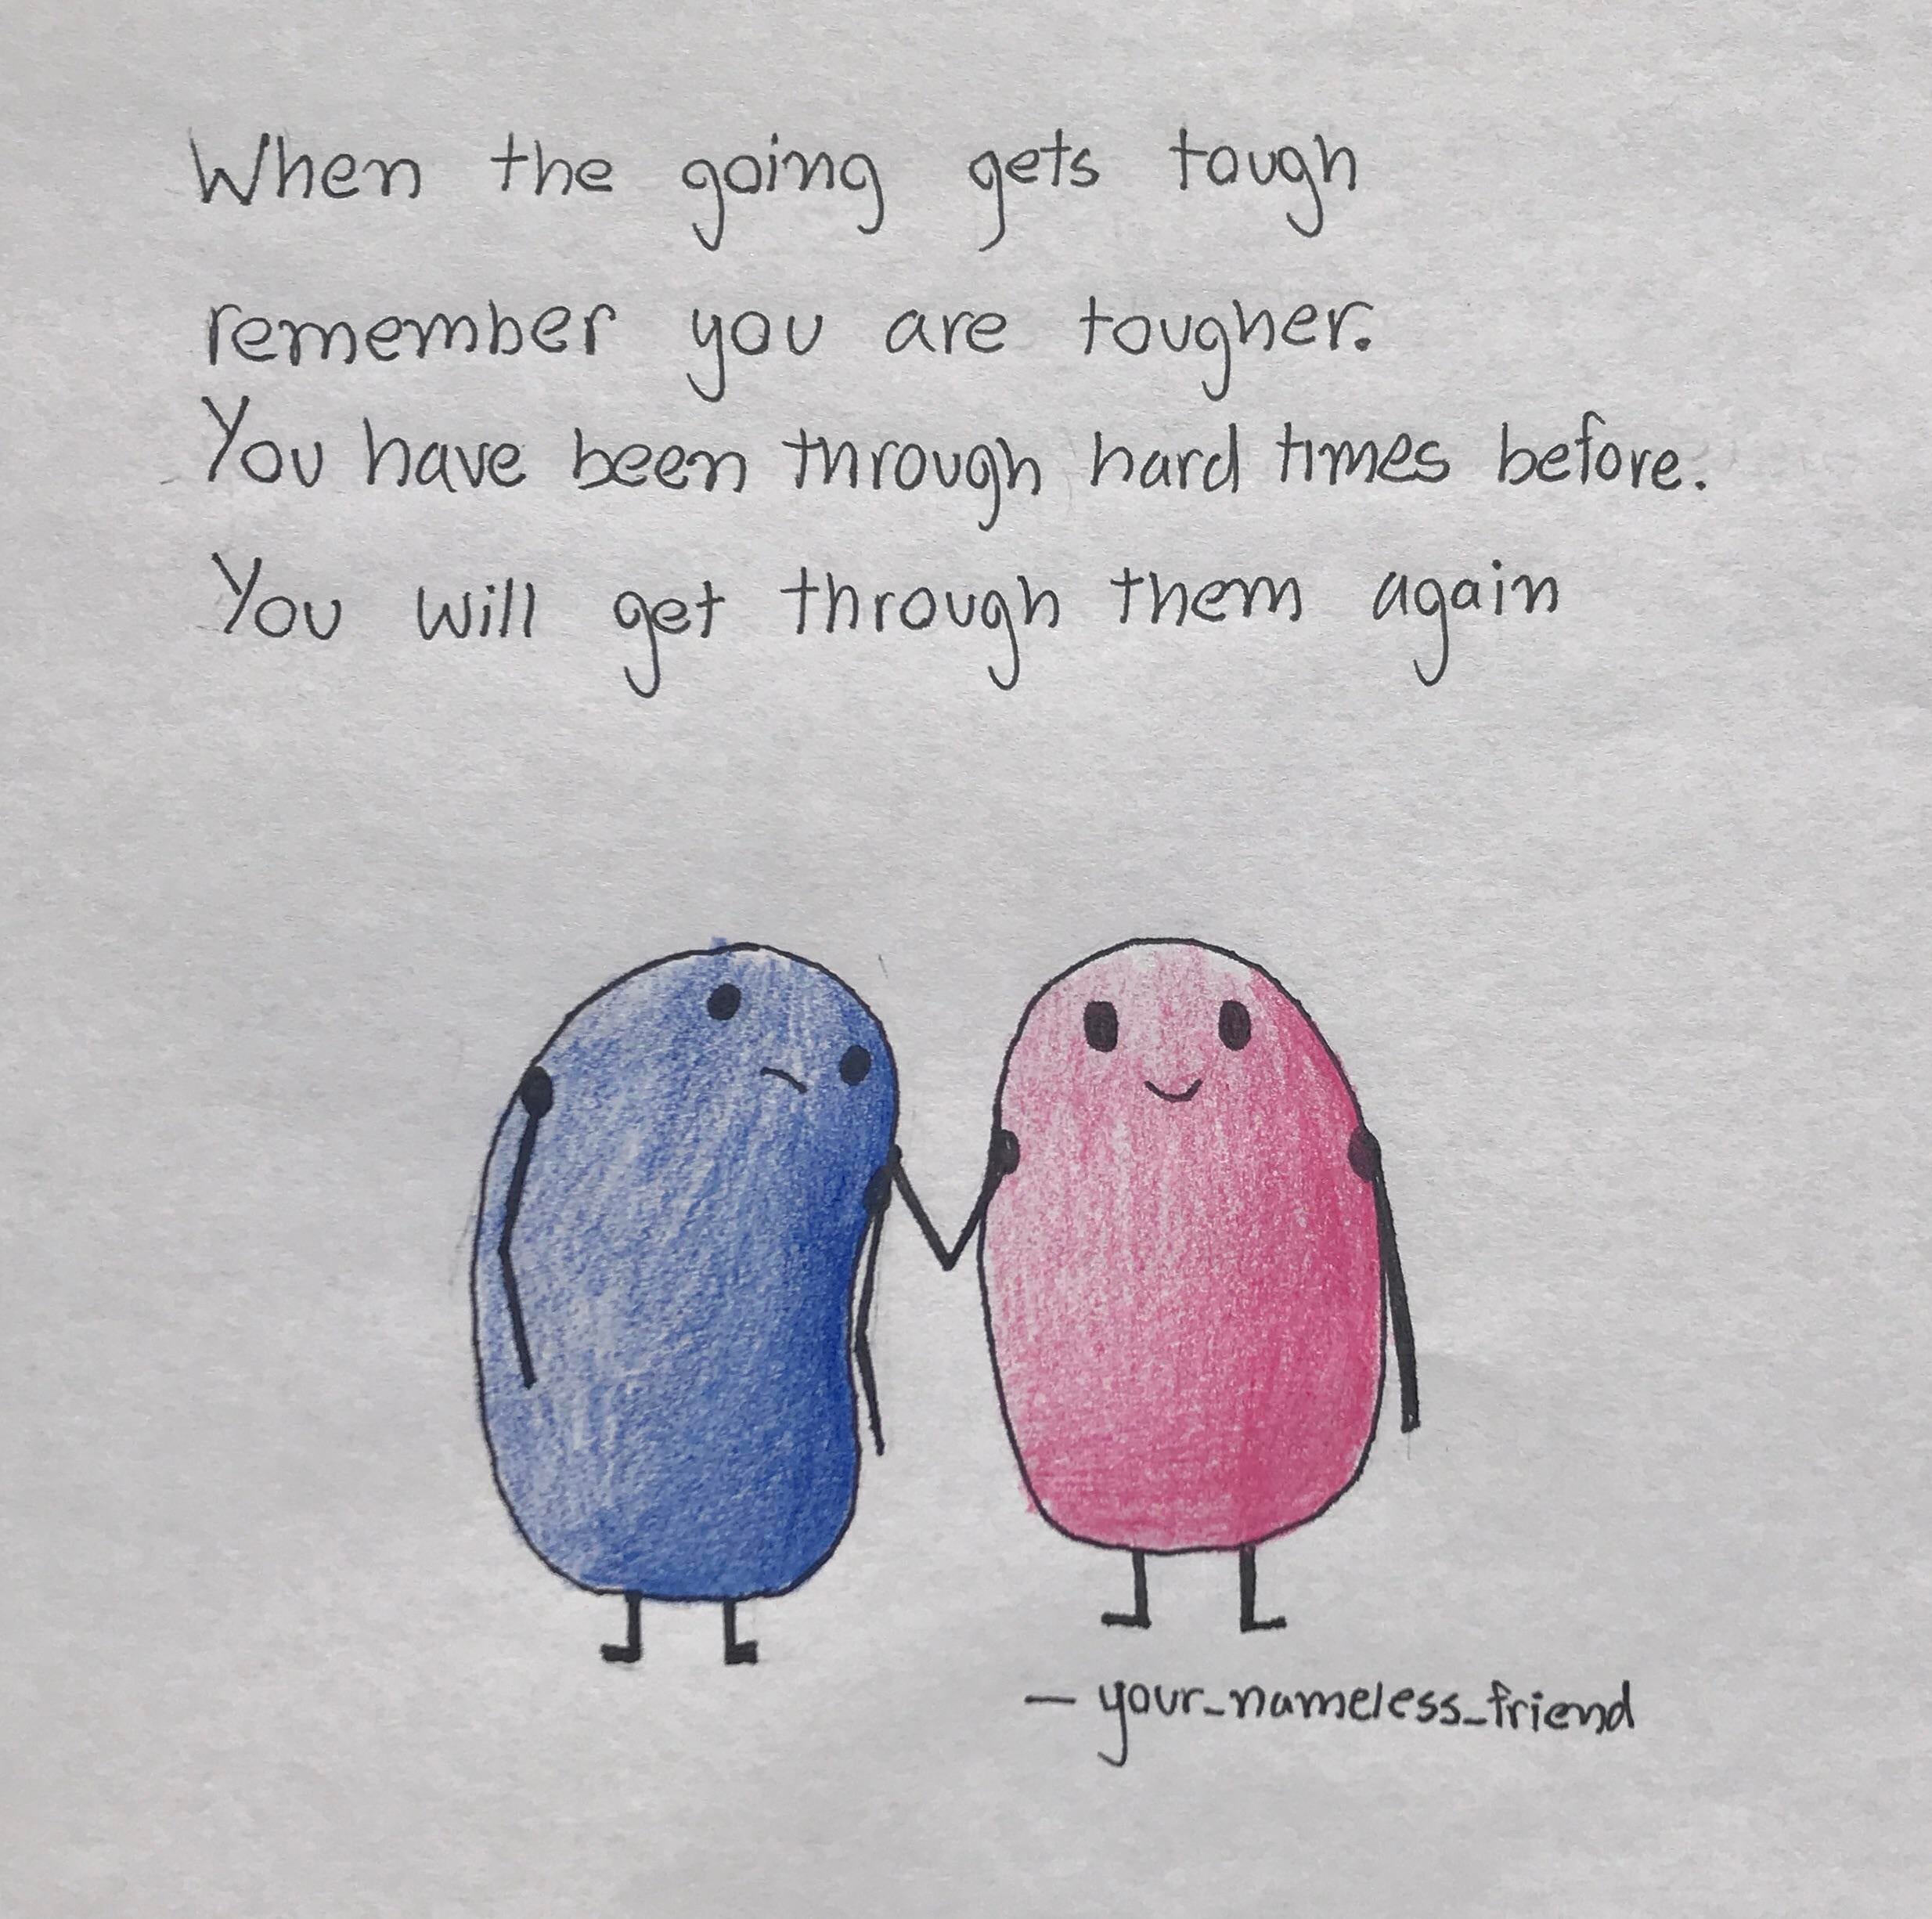 When the going gets tough
remember you are tougher.
You have been through hard times before.
You will get through them again
— your_nameless_friend